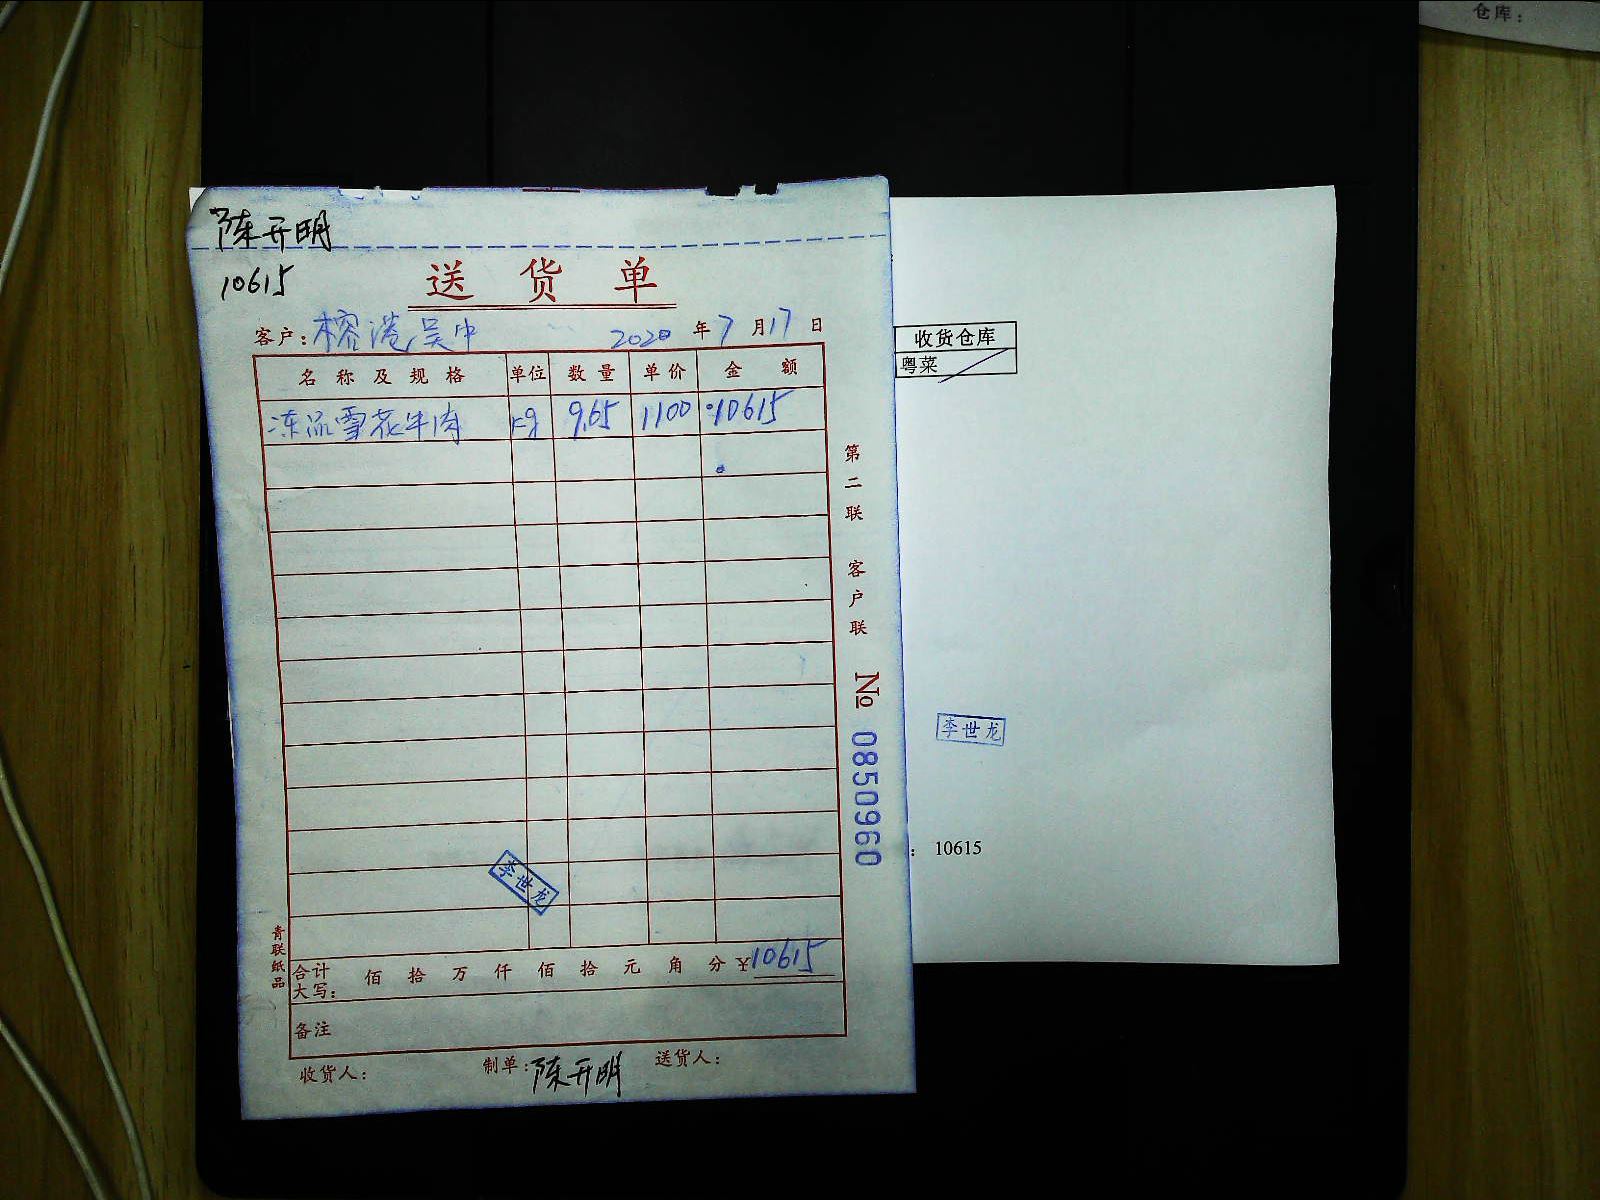 仓库：
陈开明
10615
送货单
客户：榕港吴中 2020年7月17日
名称及规格 单位 数量 单价 金额
冻品雪花牛肉 kg 9.65 1100 10615
第二联 客户联
No 0850960
李世龙
青联纸品
合计大写： 佰 拾 万 仟 佰 拾 元 角 分 ¥10615
备注
收货人： 制单：陈开明 送货人：
收货仓库
粤菜
李世龙
：10615